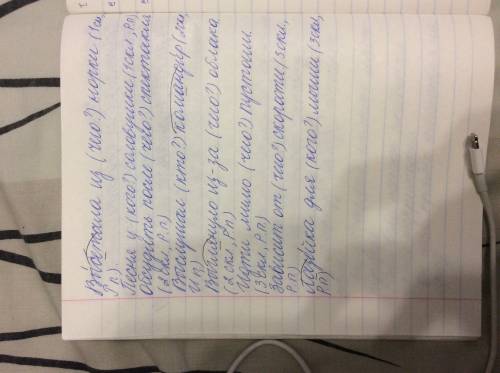 Выбежала из (чего?) норки (1 скл,
Р.п)
Песня у (кого?) соловушки (1 скл, Р.п)
Обсудить после (чего?) спектакля
(2 скл, Р.п)
Выслушал (кто?) командир (2 скл,
И.п)
Выглянуло из-за (чего?) облака
(2 скл, Р.п)
Идти мимо (чего?) пустоши
(3 скл, Р.п)
Зависит от (чего?) скорости (3 скл,
Р.п)
для (кого?) мыши (3 скл,
Р.п)